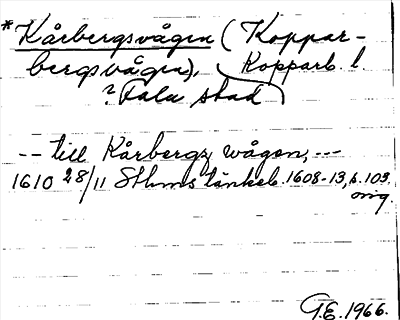 *Kårbergsvågen (Koppar-
bergsvågen), Kopparb. l.
? Falu stad
-- till Kårbergz wågen, --
1610 28/11 Sthms tänkeb. 1608-13, s. 103.
orig.
G.E. 1966.